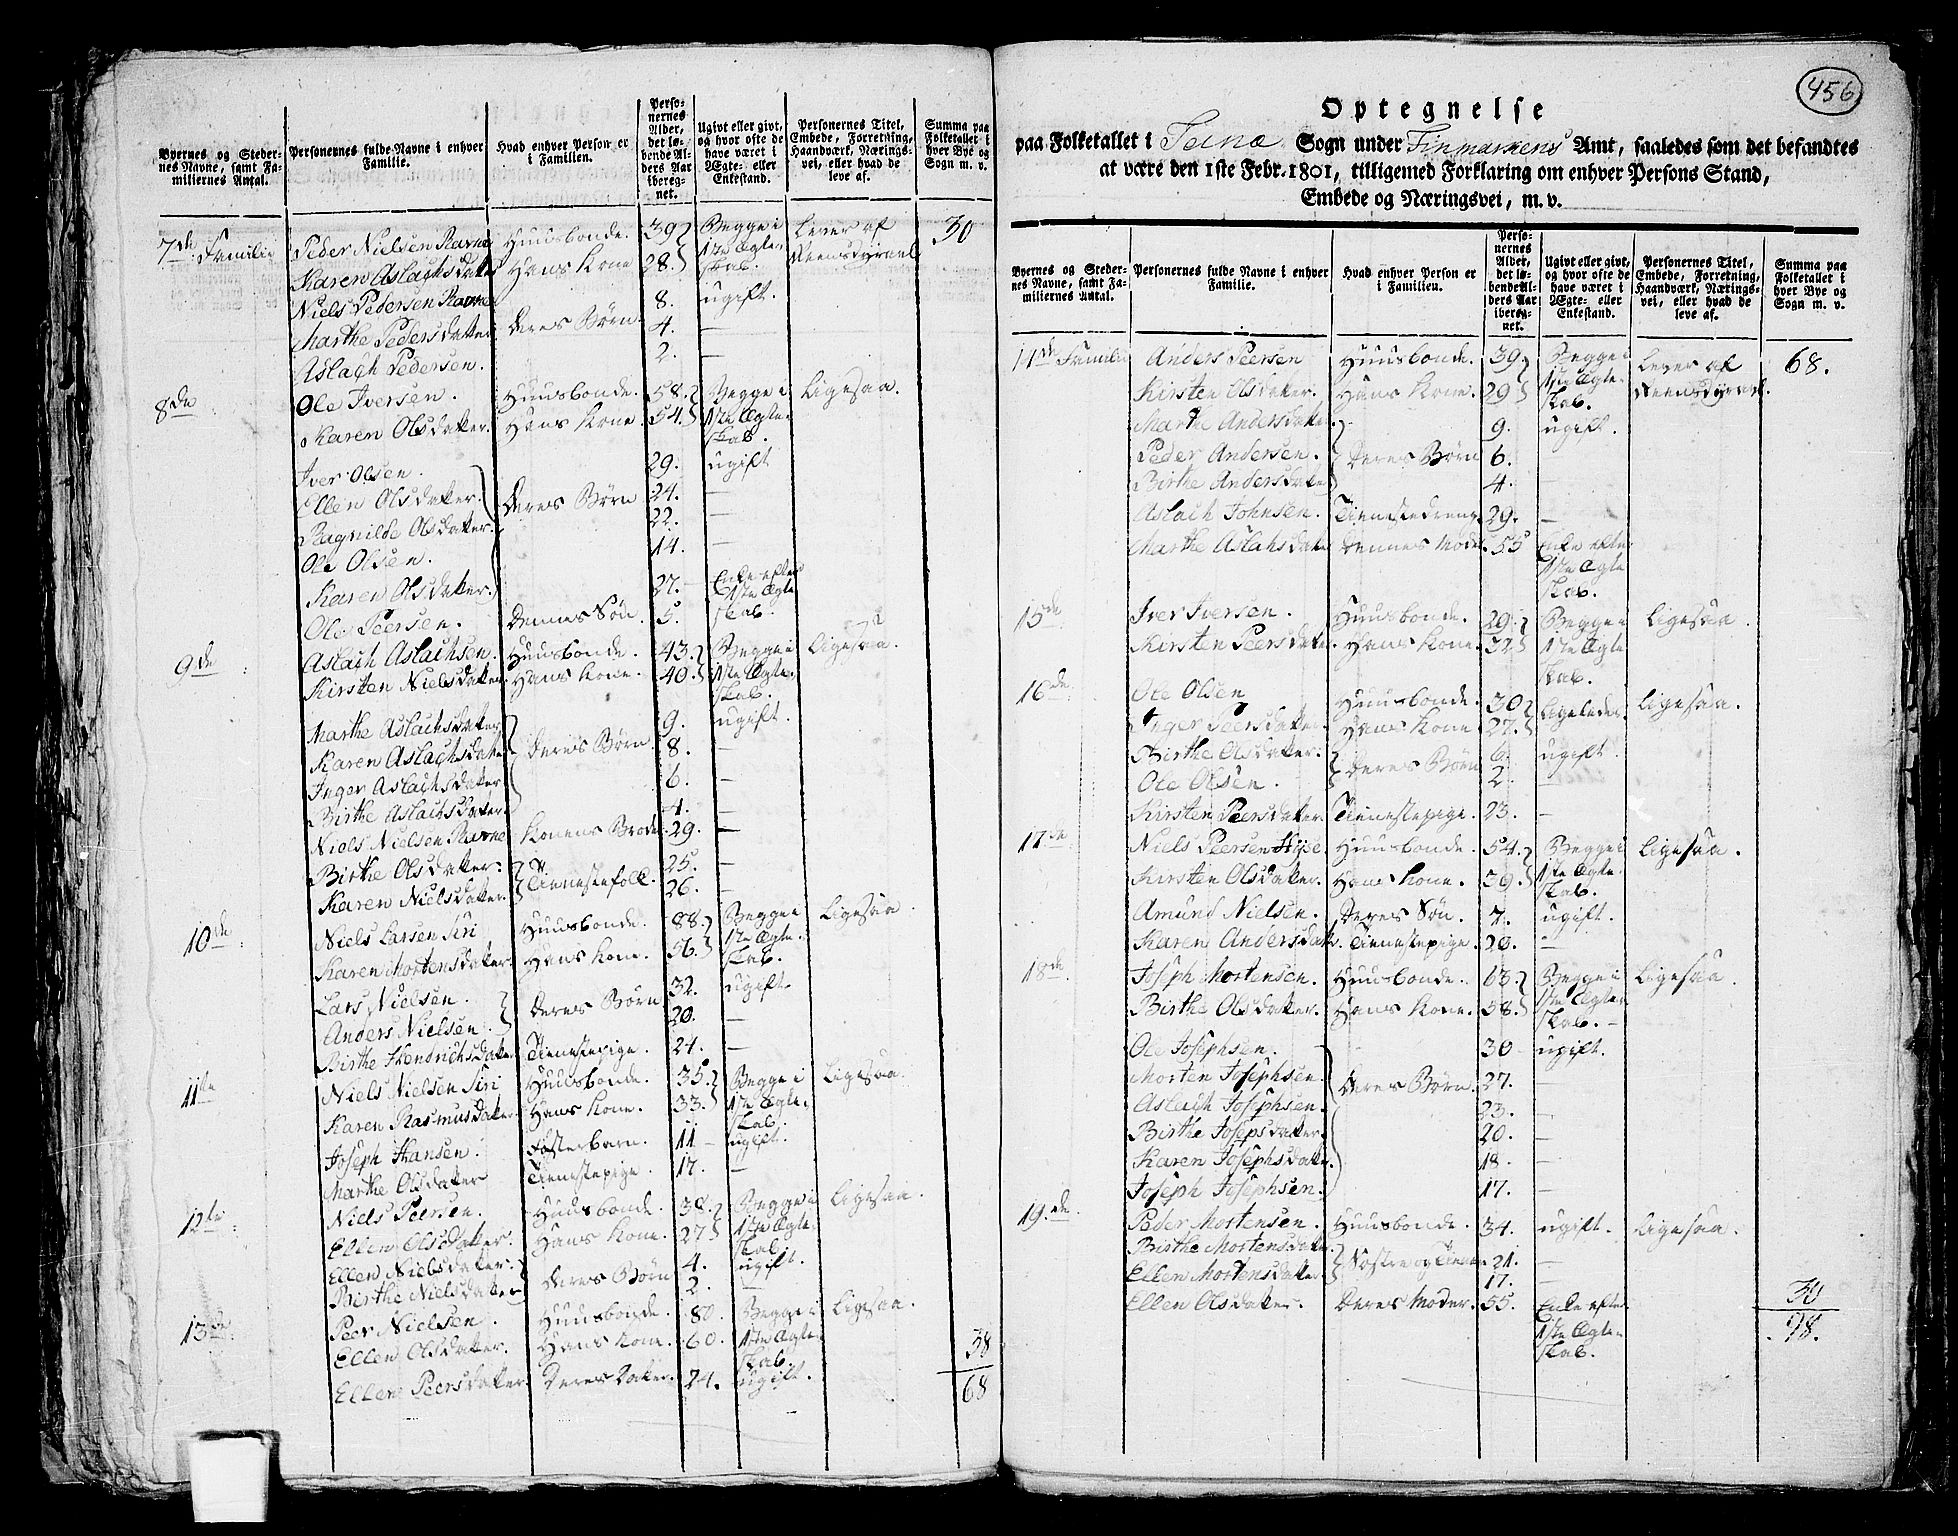 Byernes og Steder-
nes Navne, samt Fa-
miliernes Antal.
Personernes fulde Navne i enhver
Familie.
Hvad enhver Person er
i Familien.
Perso-
nernes
Alder,
der lø-
bende Al-
ders Aar
iberegg-
net.
Ugivt eller givt,
og hvor ofte de
have været i
Ægte- eller
Enkestand.
Personernes Titel,
Embede, Forretning,
Haandværk, Nærings-
vei, eller hvad de
leve af.
Summa paa
Folketallet i
hver Bye og
Sogn m. v.
7de Familie Peder Nielsen Ravna Huusbonde. 39 Begge i Lever af 30
Karen Aslachsdatter Hans Kone 28. 1ste Ægte- Reensdyrene
skab.
Niels Pedersen Ravna 8. ugift.
Marthe Pedersdatter Deres Børn 4. —
Aslach Pedersen. 2. —
8de Ole Iversen. Huusbonde. 58. Begge i Ligesaa.
Karen Olsdatter. Hans Kone 54. 1ste Ægte-
skab.
Iver Olsen. 29. ugift
Ellen Olsdatter. Deres Børn 24. —
Ragnilde Olsdatter. 22. —
Ole Olsen. 14. —
Karen Olsdatter. 27. Enke efter
1ste Ægte
Ole Peersen. Dennes Søn. 5. skab.
9de Aslach Aslachsen. Huusbonde. 43. Begge i Ligesaa.
Kirsten Nielsdatter Hans Kone. 40. 1ste Ægte-
skab.
Marthe Aslachsdatter 9. ugift.
Karen Aslachsdatter Deres Børn 8. —
Inger Aslachsdatter 6. —
Birthe Aslachsdatter. 4. —
Niels Nielsen Ravna Konens Broder 29. —
Birthe Olsdatter. Tienestefolk. 25. —
Karen Nielsdatter. 26. —
10de Niels Larsen Siri Huusbonde. 88. Begge i Ligesaa.
Karen Mortensdatter. Hans Kone. 56. 1ste Ægte-
skab.
Lars Nielsen. Deres Børn 32. ugift
Anders Nielsen. 20. —
Birthe Hendrichsdatter Tienestepige. 24. —
11te Niels Nielsen Siri Huusbonde. 35. Begge i Ligesaa.
Karen Rasmusdatter Hans Kone. 33. 1ste Ægte-
skab.
Joseph Hansen. Fosterbarn. 11 — ugift.
Marthe Olsdatter Tienestepige. 17. —
12te Niels Peersen. Huusbonde. 38. Begge i Ligesaa.
Ellen Olsdatter. Hans Kone. 27 1ste Ægte-
skab
Ellen Nielsdatter. Deres Børn 4. ugift.
Birthe Nielsdatter 2. —
13de Peer Nielsen. Huusbonde. 80. Begge i Ligesaa.
Ellen Olsdatter. Hans Kone. 60. 1ste Ægte- 38
skab.
Ellen Peersdatter. Deres Datter. 24. ugift. 68
456
Optegnelse
paa Folketallet i Tana Sogn under Finmarkens Amt, saaledes som det befandtes
at være den 1ste Febr. 1801, tilligemed Forklaring om enhver Persons Stand,
Embede og Næringsvei, m. v.
Byernes og Steder-
nes Navne, samt Fa-
miliernes Antal.
Personernes fulde Navne i enhver
Familie.
Hvad enhver Person er
i Familien.
Perso-
nernes
Alder,
det lø-
bende Al-
ders Aar
iberegg-
net.
Ugivt eller givt,
og hvor ofte de
have været i
Ægte- eller
Enkestand.
Personernes Titel,
Embede, Forretning,
Haandværk, Nærings-
vei, eller hvad de
leve af.
Summa paa
Folketallet i
hver Bye og
Sogn m. v.
14de Familie Anders Peersen Huusbonde. 39. Begge i Lever af 68.
Kirsten Olsdatter. Hans Kone. 29 1ste Ægte- Reensdyrene.
skab.
Marthe Andersdatter 9. ugift.
Peder Andersen. Deres Børn 6. —
Birthe Andersdatter 4. —
Aslach Johnsen. Tienestedreng 29. —
Marthe Aslachsdatter Dennes Moder. 55 Enke efter
1ste Ægte
skab.
15de Iver Iversen. Huusbonde. 29. Begge i Ligesaa.
Kirsten Peersdatter Hans Kone. 32. 1ste Ægte
skab.
16de Ole Olsen Huusbonde. 30 Ligeledes. Ligesaa.
Inger Peersdatter Hans Kone 27.
Birthe Olsdatter. Deres Børn 6. ugift.
Ole Olsen. 2. —
Kirsten Peersdatter Tienestepige. 23. —
17de Niels Peersen Huusbonde. 54. Begge i Ligesaa.
Kirsten Olsdatter. Hans Kone. 39. 1ste Ægte-
skab.
Amund Nielsen. Deres Søn. 7. ugift.
Karen Andersdatter. Tienestepige. 20. —
18de Joseph Mortensen. Huusbonde. 63. Begge i Ligesaa.
Birthe Olsdatter. Hans Kone. 58. 1ste Ægte-
skab. —
Ole Josephsen. 30 ugift.
Morten Josephsen. Deres Børn. 27. —
Aslach Josephsen. 23. —
Birthe Josepsdatter. 20. —
Karen Josephsdatter. 18. —
Joseph Josephsen. 17. —
19de. Peder Mortensen. Huusbonde. 34. ugift. Ligesaa.
Birthe Mortensdatter 21. —
Ellen Mortensdatter 17. —
Ellen Olsdatter. Deres Moder. 55. Enke efter 30
1ste Ægte- 98.
skab.